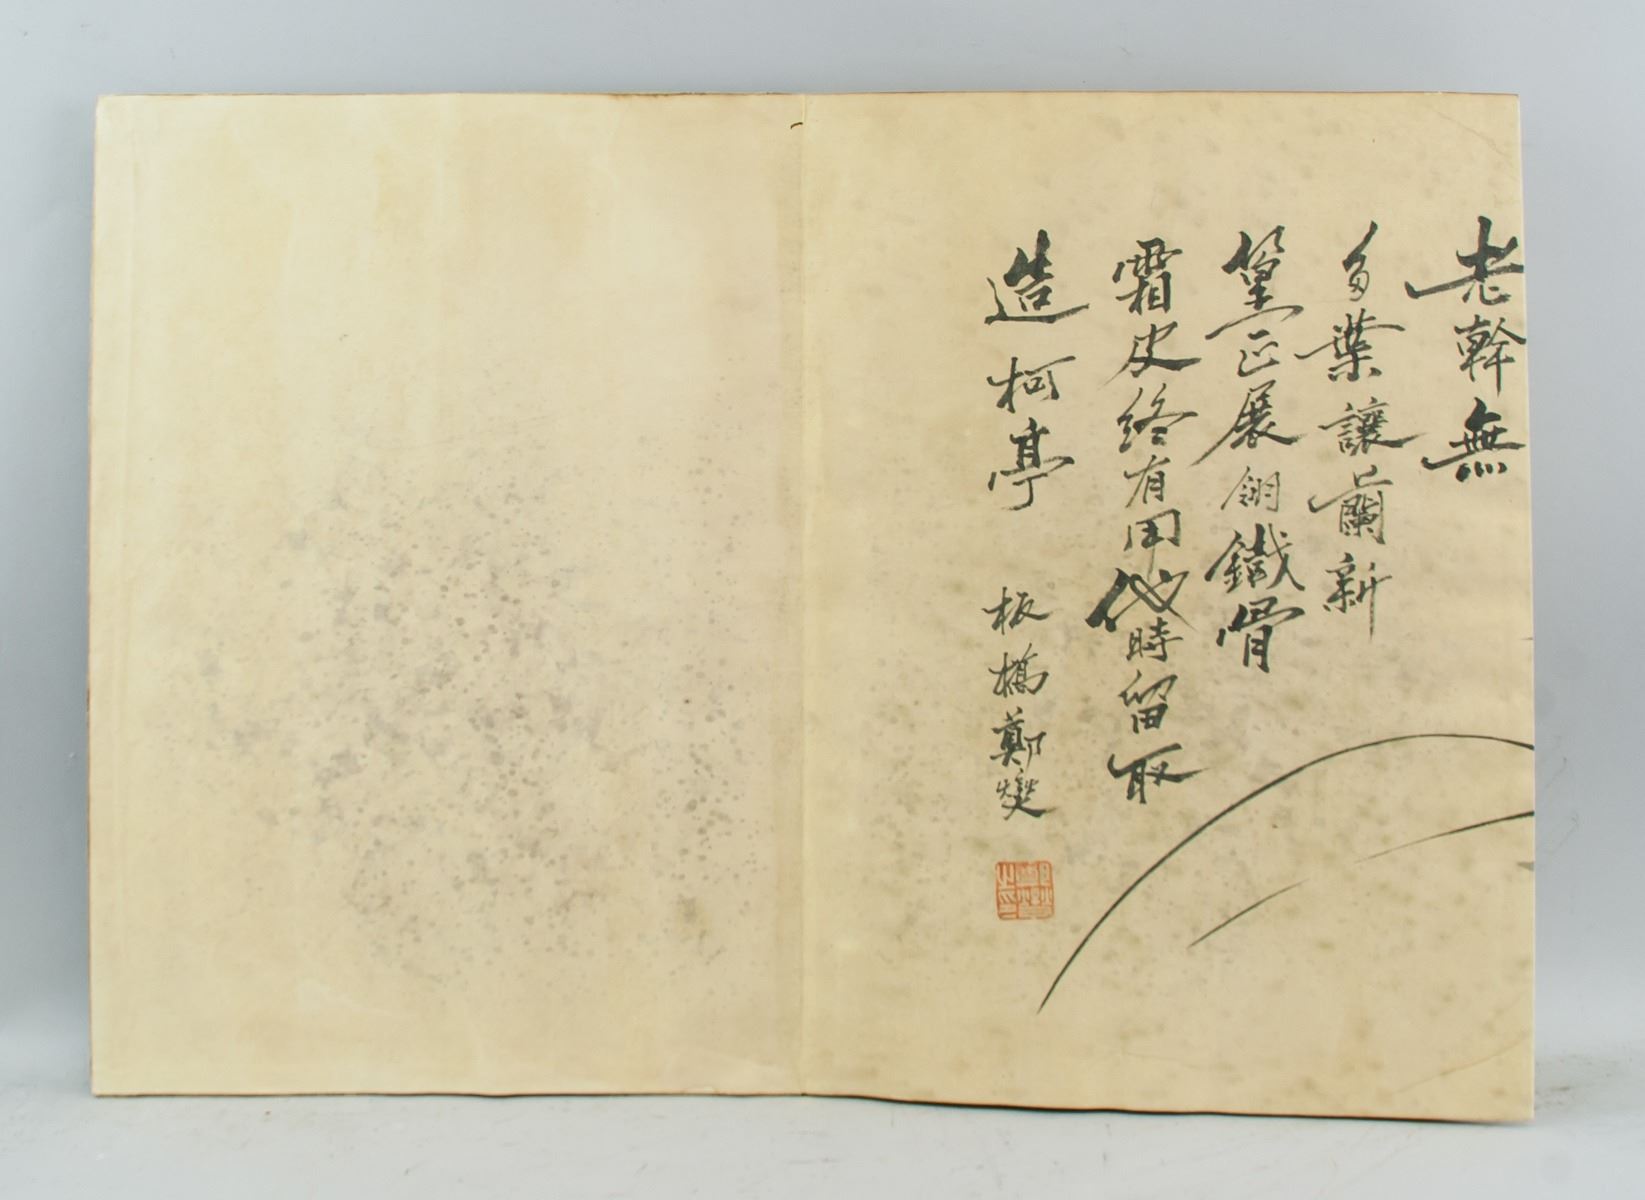 老幹無
多葉讓爾新
篁正展翎鐵骨
霜皮終有用他時留取
造柯亭
板橋鄭燮
鄭燮之印